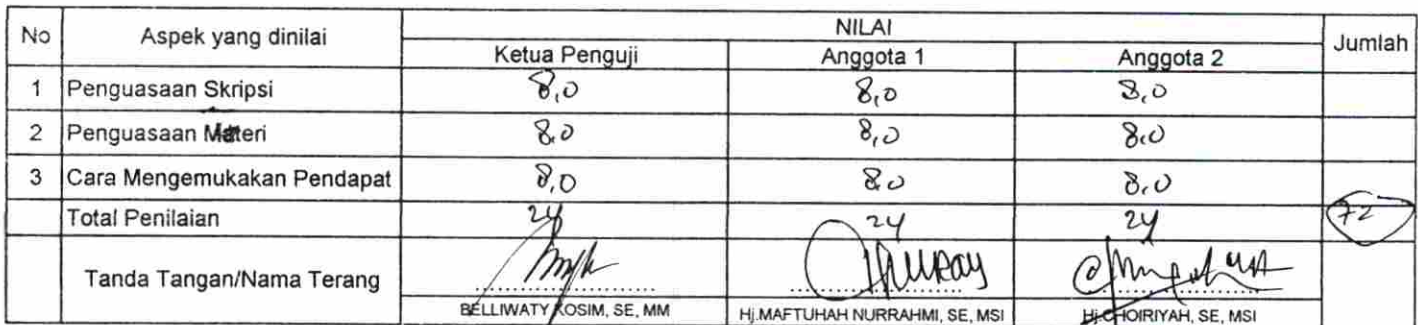 No Aspek yang dinilai NILAI Jumlah
Ketua Penguji Anggota 1 Anggota 2
1 Penguasaan Skripsi 8,0 8,0 8,0
2 Penguasaan Materi 8,0 8,0 8,0
3 Cara Mengemukakan Pendapat 8,0 8,0 8,0
Total Penilaian 24 24 24 72
Tanda Tangan/Nama Terang
BELLIWATY KOSIM, SE, MM Hj.MAFTUHAH NURRAHMI, SE, MSI Hj.CHOIRIYAH, SE, MSI